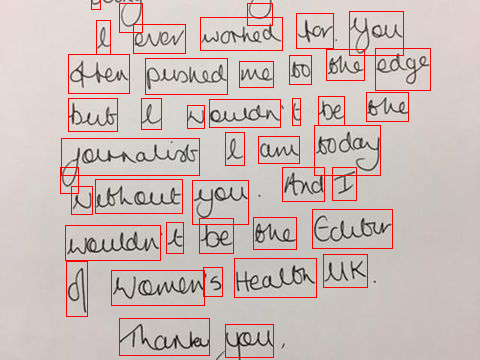 I ever worked for. You
often pushed me to the edge
but I wouldn't be the
journalist I am today
without you. And I
wouldn't be the Editor
of Women's Health UK.
Thank you.